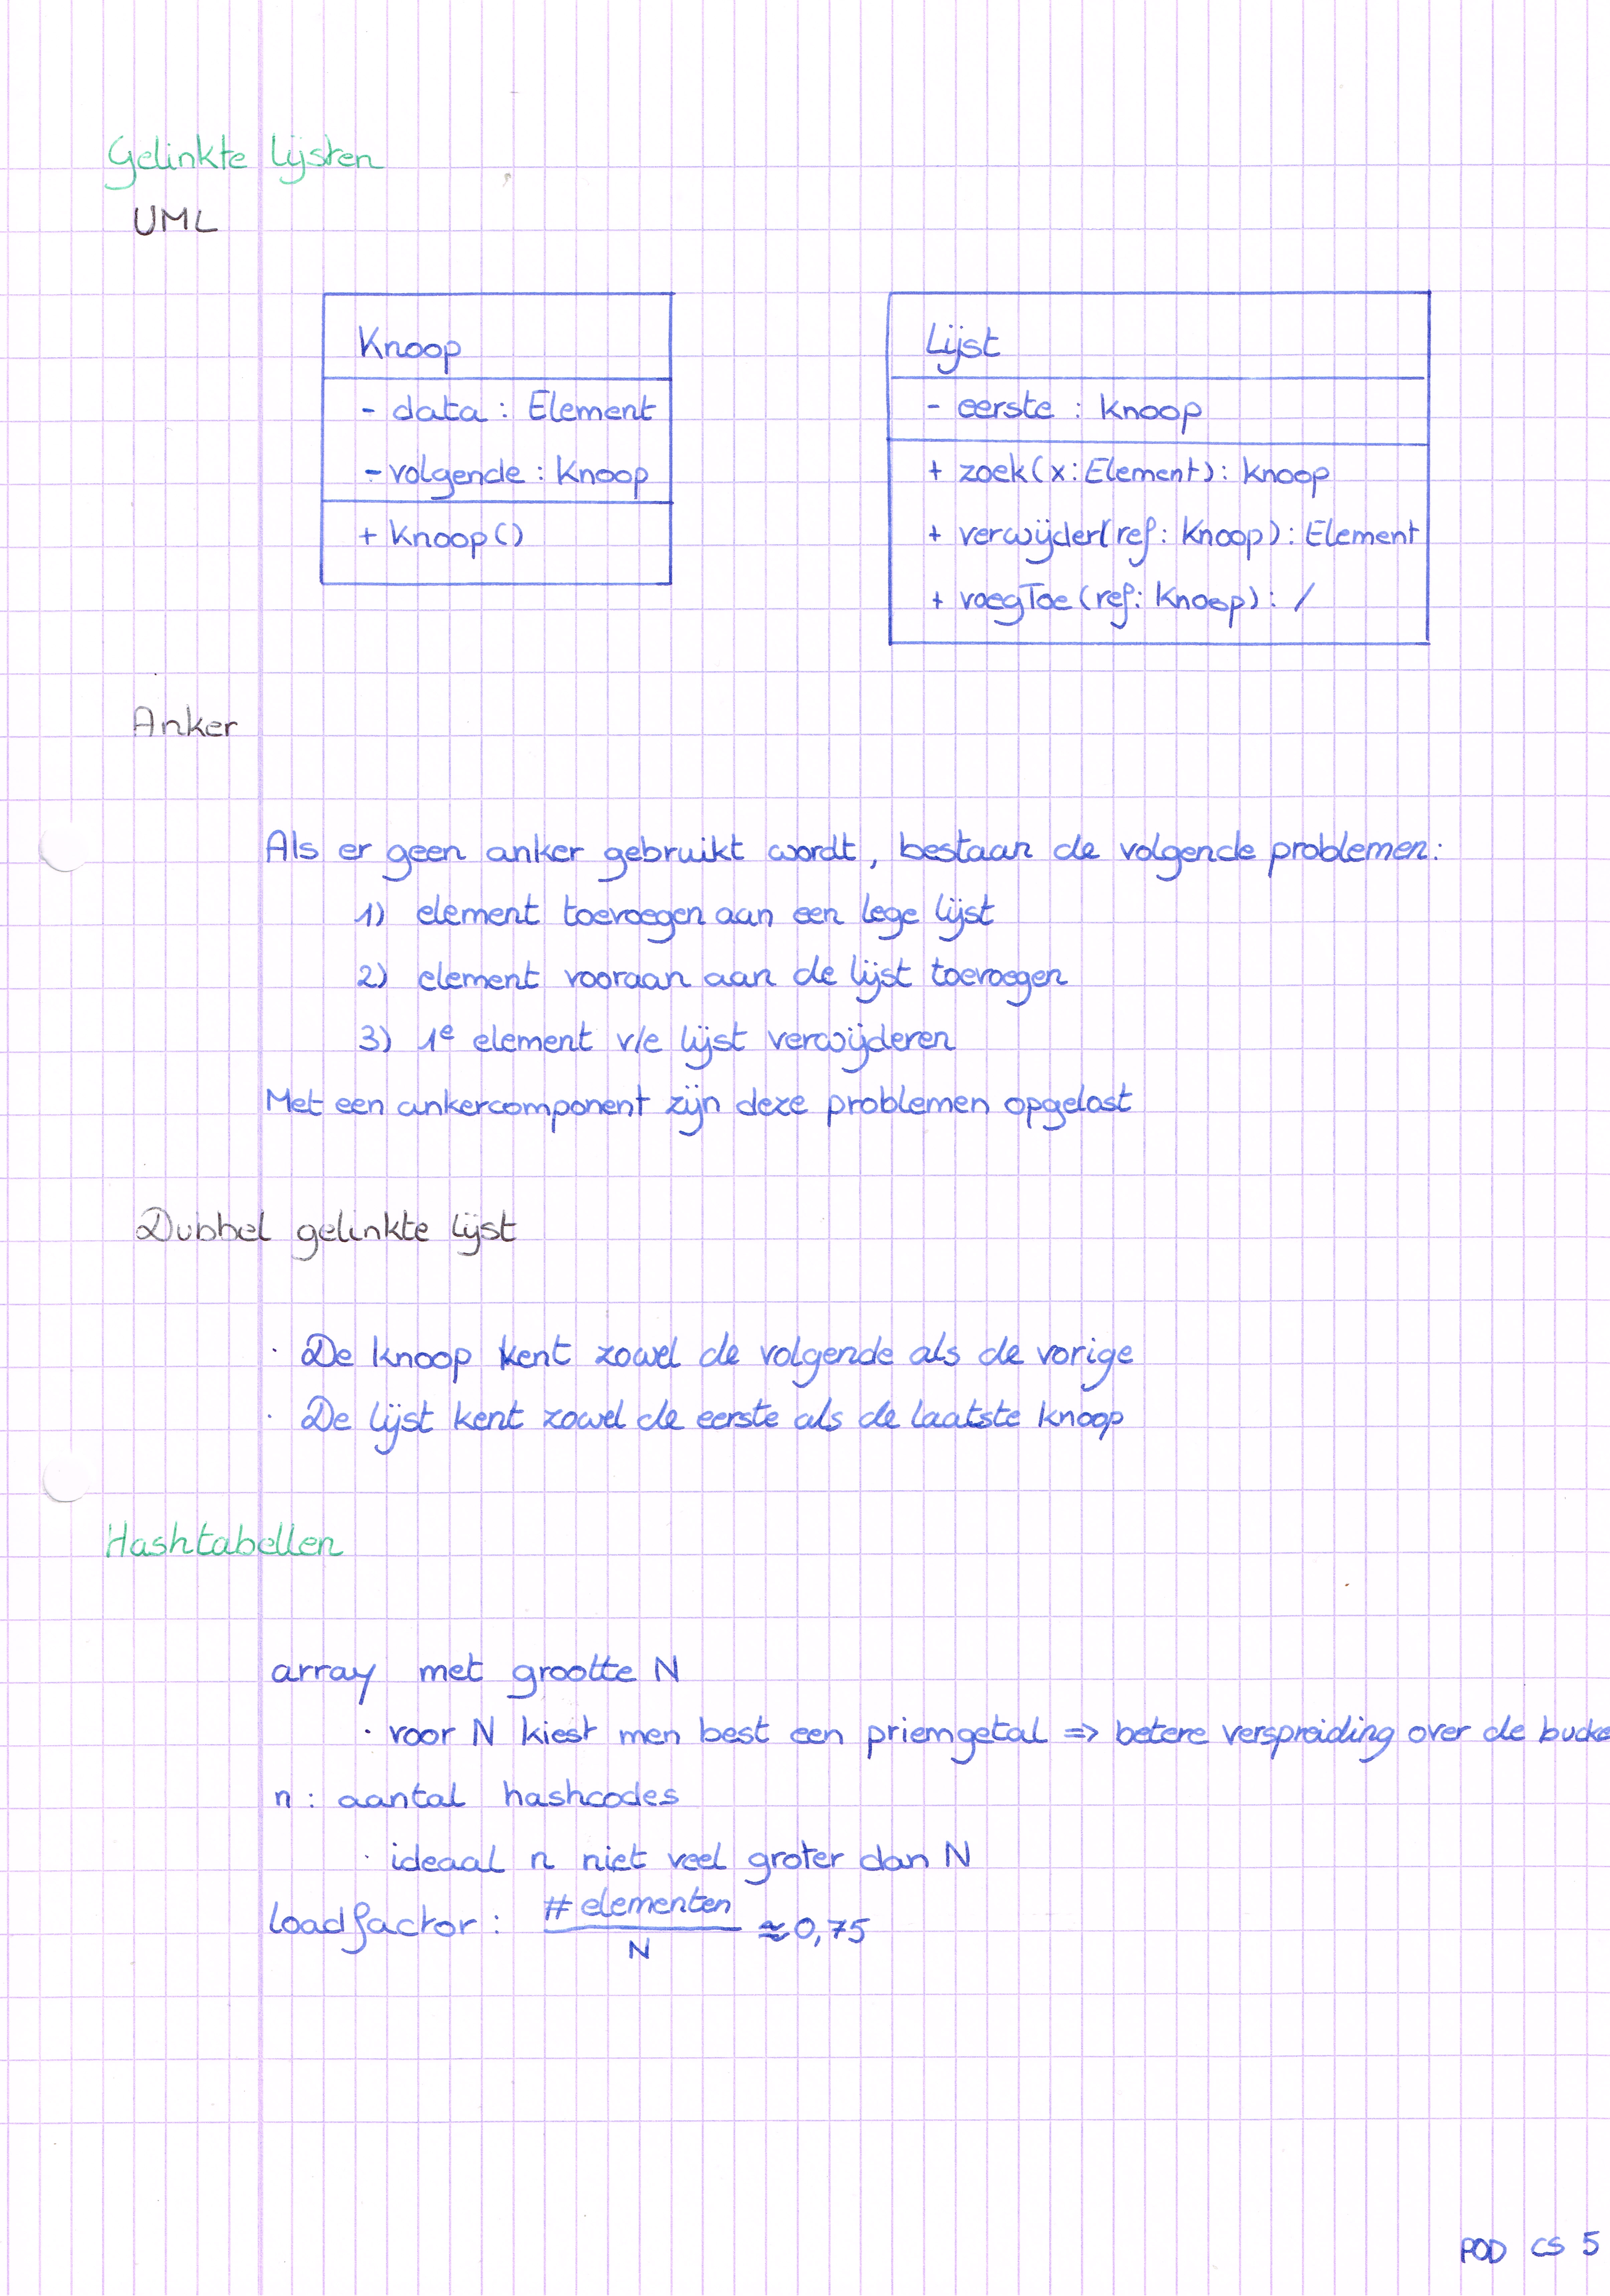 Gelinkte lijsten
UML
Knoop
- data : Element
- volgende : Knoop
+ Knoop()
Lijst
- eerste : Knoop
+ zoek(x:Element): Knoop
+ verwijder(ref: Knoop): Element
+ voegToe(ref: Knoop): /
Anker
Als er geen anker gebruikt wordt, bestaan de volgende problemen:
1) element toevoegen aan een lege lijst
2) element vooraan aan de lijst toevoegen
3) 1e element v/e lijst verwijderen
Met een ankercomponent zijn deze problemen opgelost
Dubbel gelinkte lijst
· De knoop kent zowel de volgende als de vorige
· De lijst kent zowel de eerste als de laatste knoop
Hashtabellen
array met grootte N
· voor N kiest men best een priemgetal => betere verspreiding over de
n : aantal hashcodes
· ideaal n niet veel groter dan N
loadfactor : # elementen / N ≈ 0,75
POD CS 5